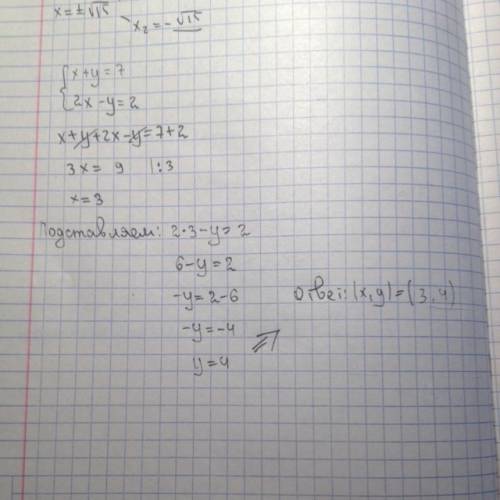 x=±√15
x₂=-√15
{x+y=7
2x-y=2
x+y+2x-y=7+2
3x= 9 |:3
x=3
Подставляем: 2·3-y=2
6-y=2
-y=2-6
-y=-4
y=4
Ответ: (x,y)=(3,4)